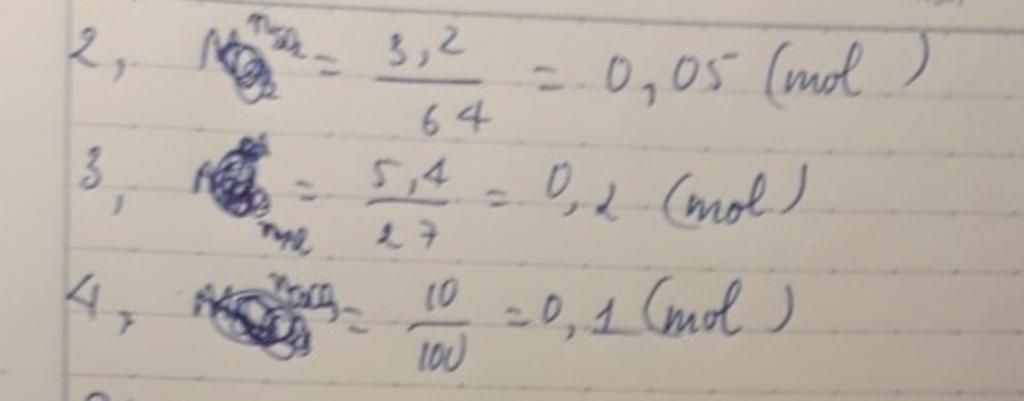 2, nSO2 = 3,2 / 64 = 0,05 (mol)
3, nAl = 5,4 / 27 = 0,2 (mol)
4, = 10 / 100 = 0,1 (mol)